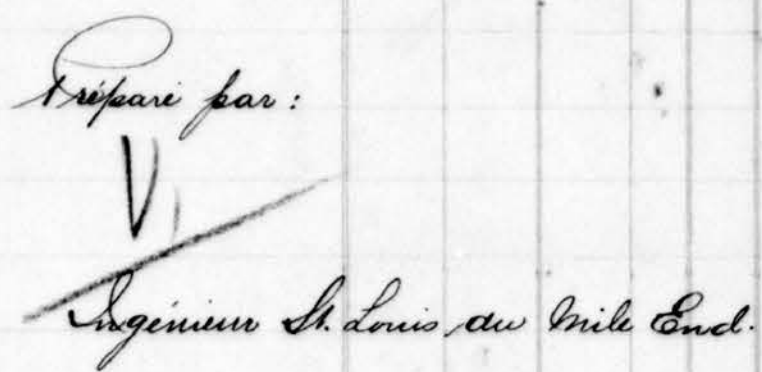 Préparé par:
V
Ingénieur St. Louis du Mile End.